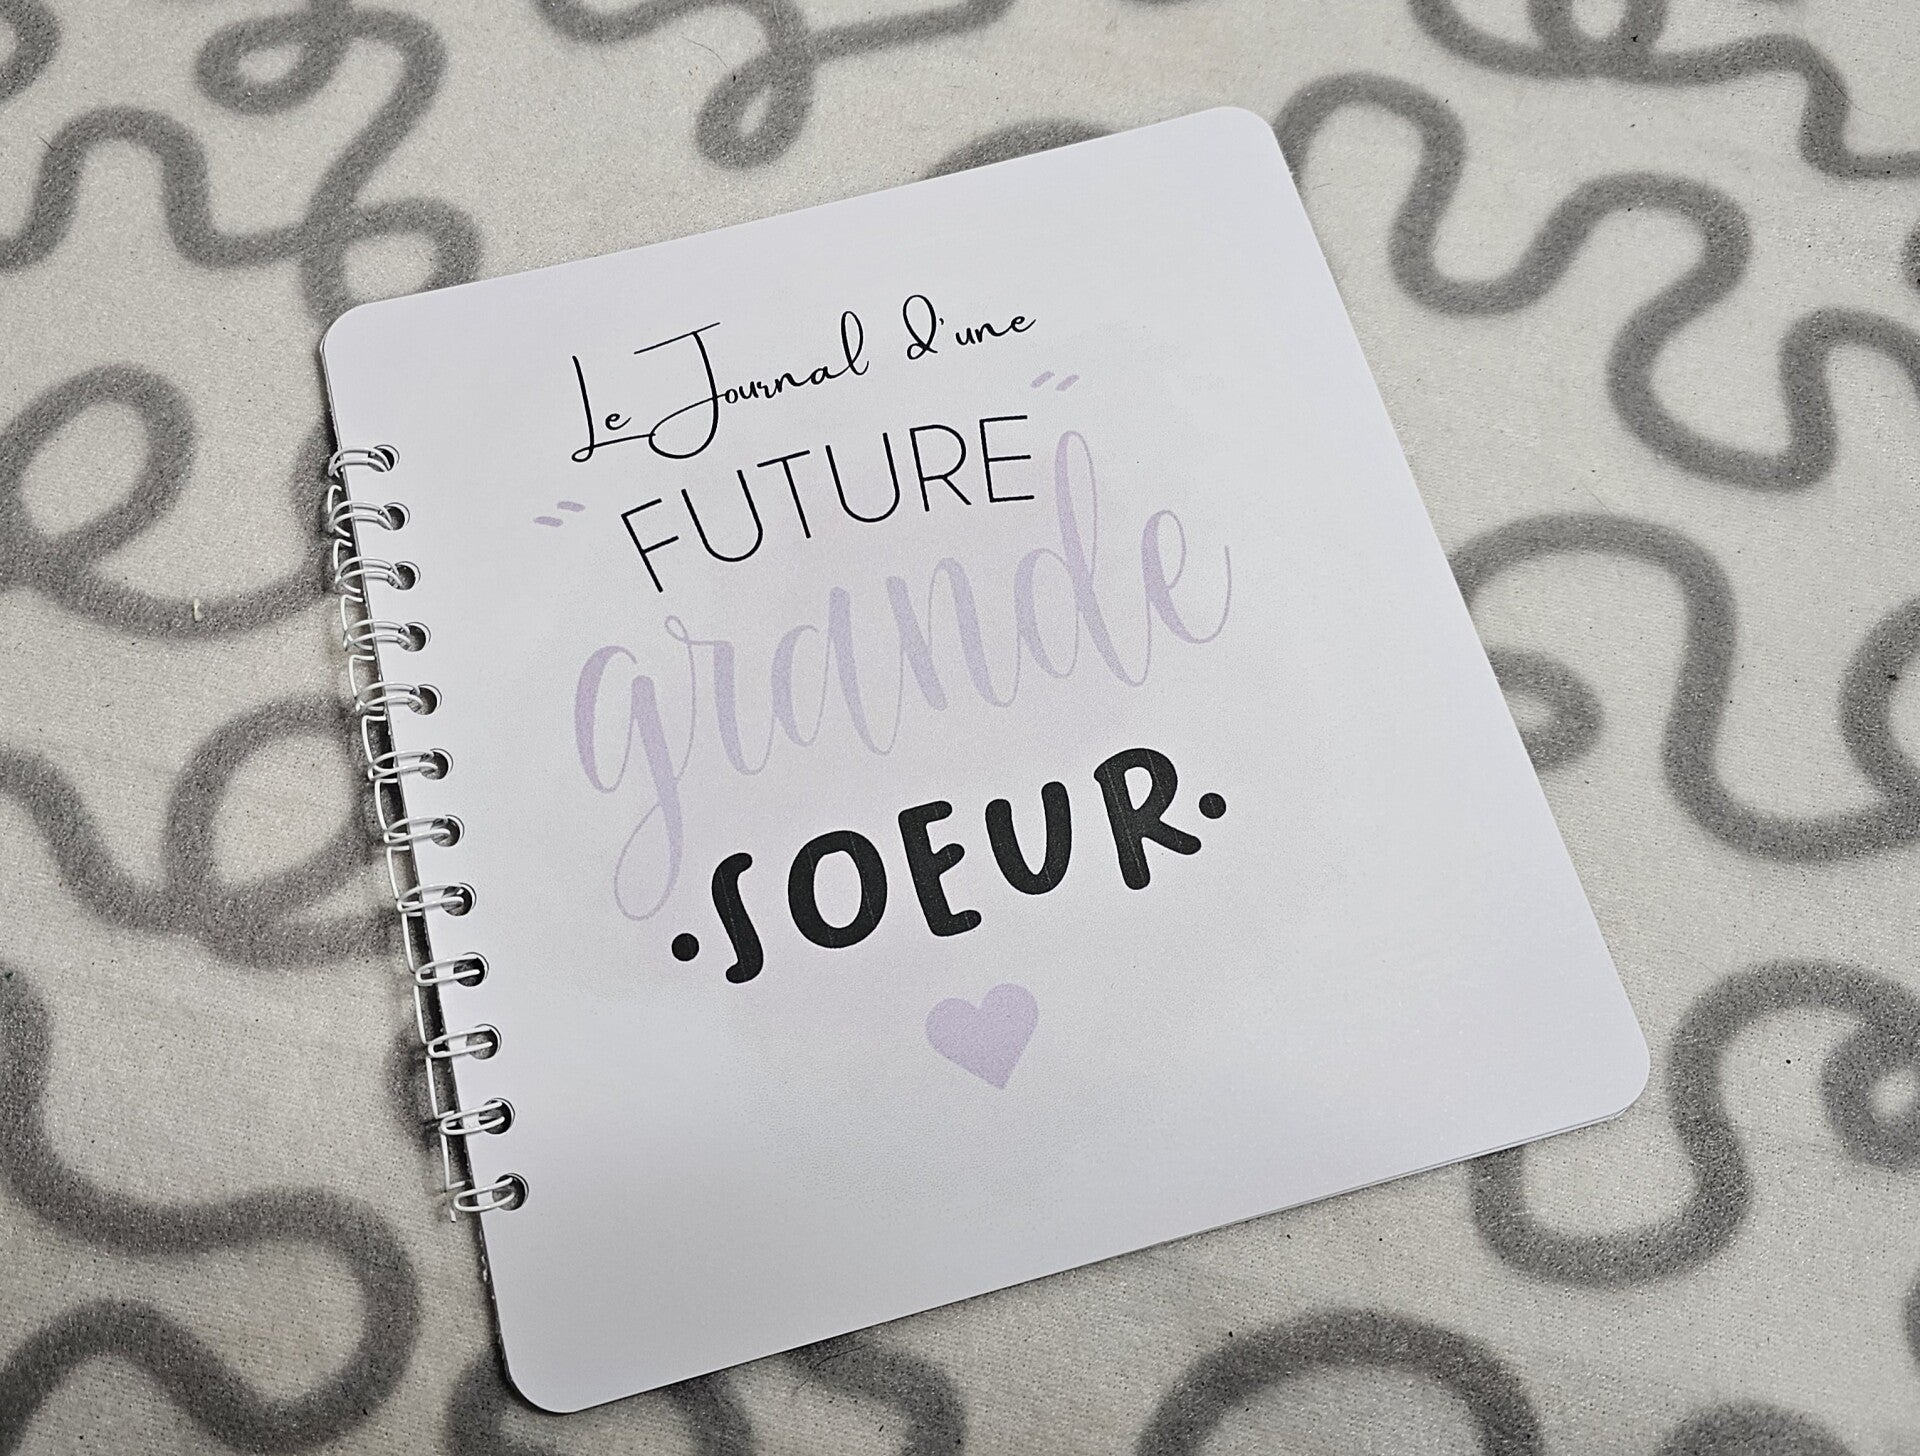 Le Journal d'une
"FUTURE"
grande
•SOEUR•